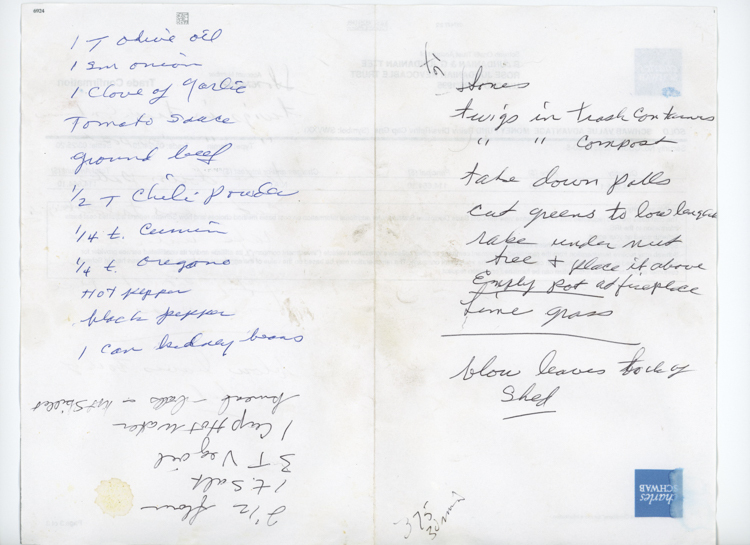 6924
1 T olive oil
1 sm onion
1 clove of garlic
Tomato sauce
ground beef
1/2 T Chili powder
1/4 t. Cumin
1/4 t. oregano
Hot pepper
black pepper
1 can kidney beans
2 1/2 flour
1 t. Salt
3 T Veg oil
1 Cup Hot water
knead - balls - Hot Skillet
stones
twigs in trash containers
" " compost
take down
cut greens to low
rake under nut
tree + place it above
Empty pot fireplace
lime grass
blow leaves back of
Shed
375
30 min
charles
SCHWAB